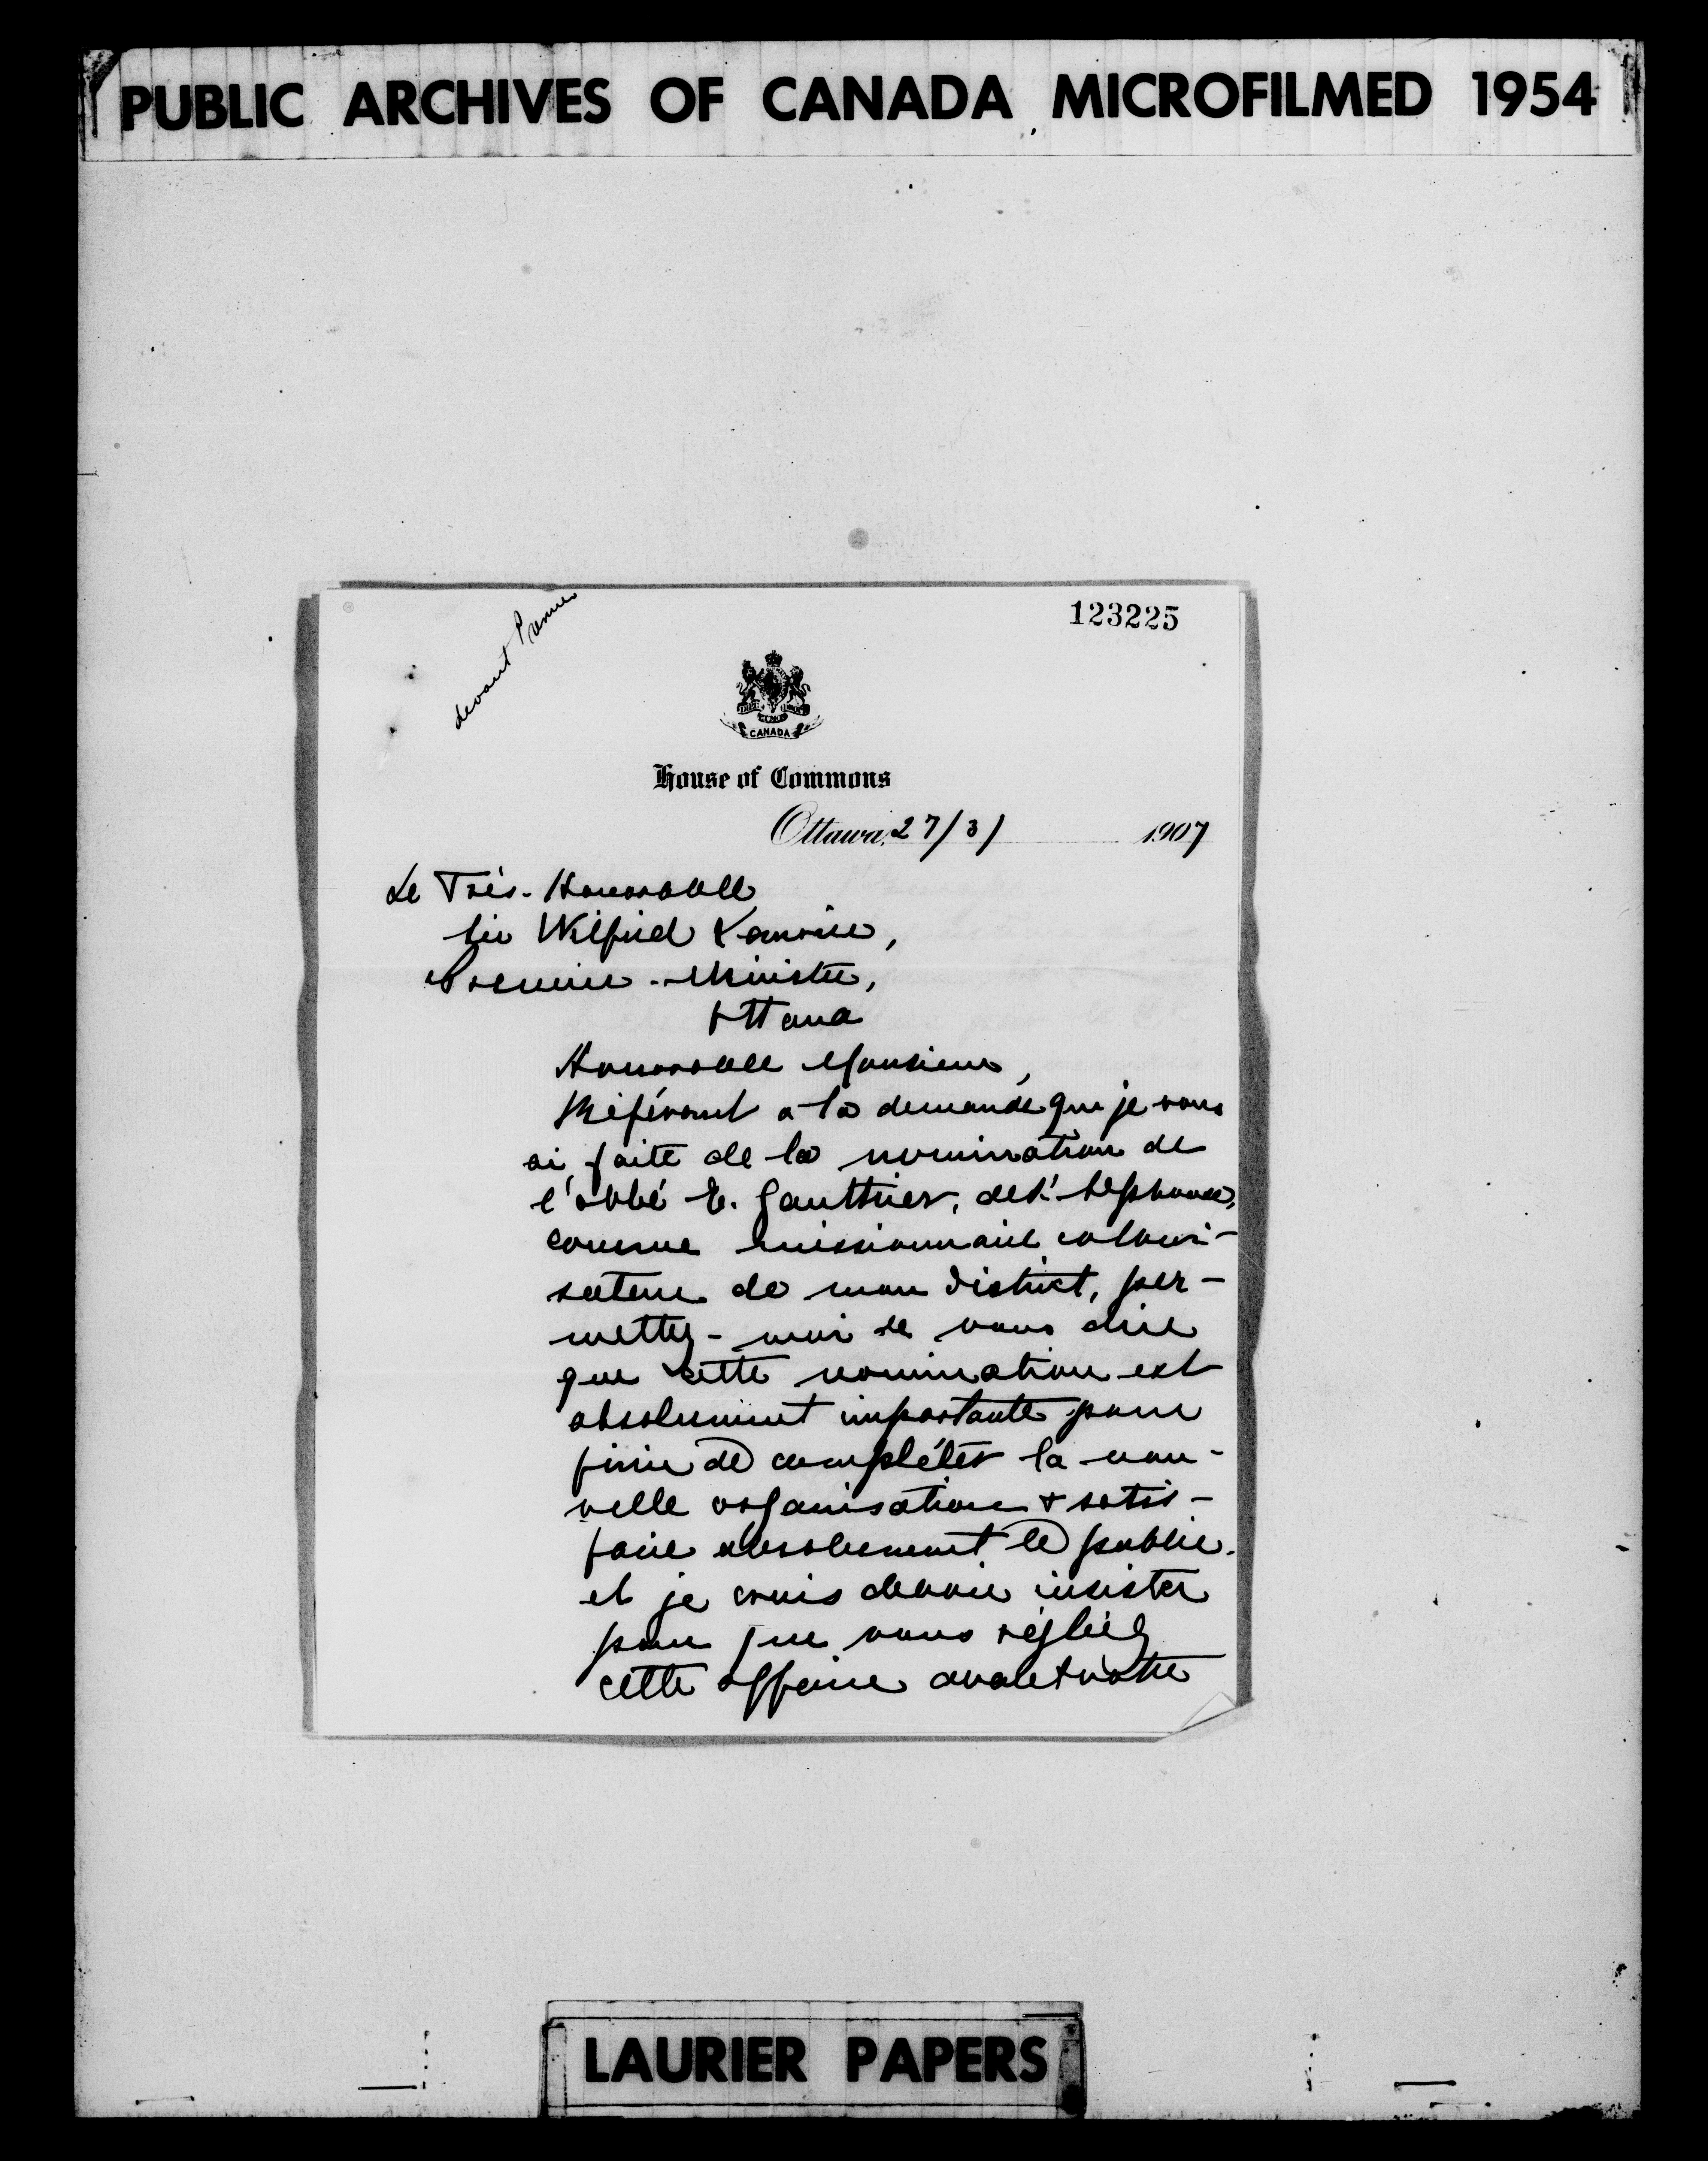 PUBLIC ARCHIVES OF CANADA MICROFILMED 1954
123225
devant
CANADA
House of Commons
Ottawa, 27/3/ 1907
Le Très-Honorable
Sir Wilfrid Laurier,
Premier-Ministre,
Ottawa
Honorable Monsieur,
Référant a la demande que je vous
ai faite de la nomination de
l'abbé E. Gauthier,
comme missionnaire coloni-
sateur de mon district, per-
mettez-moi de vous dire
que cette nomination est
absolument importante pour
finir de compléter la nou-
velle organisation & satis-
faire absolument le public.
et je crois devoir insister
pour que vous régliez
cette affaire avant votre
LAURIER PAPERS